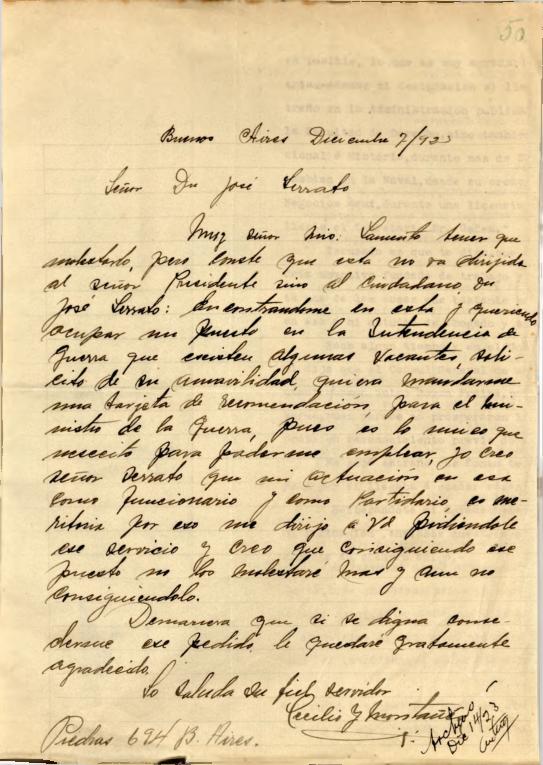 50
Buenos Aires Diciembre 7/923
Señor Dn José Serrato
Muy señor mio: Lamento tener que
molestarlo, pero conste que esta no va dirijida
al señor Presidente sino al ciudadano, Dn
José Serrato: encontrandome en esta y queriendo
ocupar un puesto en la Intendencia de
Guerra que existen algunas vacantes, soli-
cito de su amavilidad, quiera mandarme
una tarjeta de recomendación, para el mi-
nistro de la Guerra, pues es lo unico que
nesecito para poderme emplear, yo creo
señor Serrato que mi actuación en esa
como funcionario y como Partidario, es me-
ritoria por eso me dirijo á Vd pidiendole
ese servicio y creo que consiguiendo ese
puesto no los molestaré mas y aun no
consiguiendolo.
Demanera que si se digna conse-
derme ese pedido le quedaré gratamente
agradecido.
Lo saluda su fiel servidor
Cecilio Y Montaño
Piedras 694 B. Aires.
Archivo
Dic 14/23